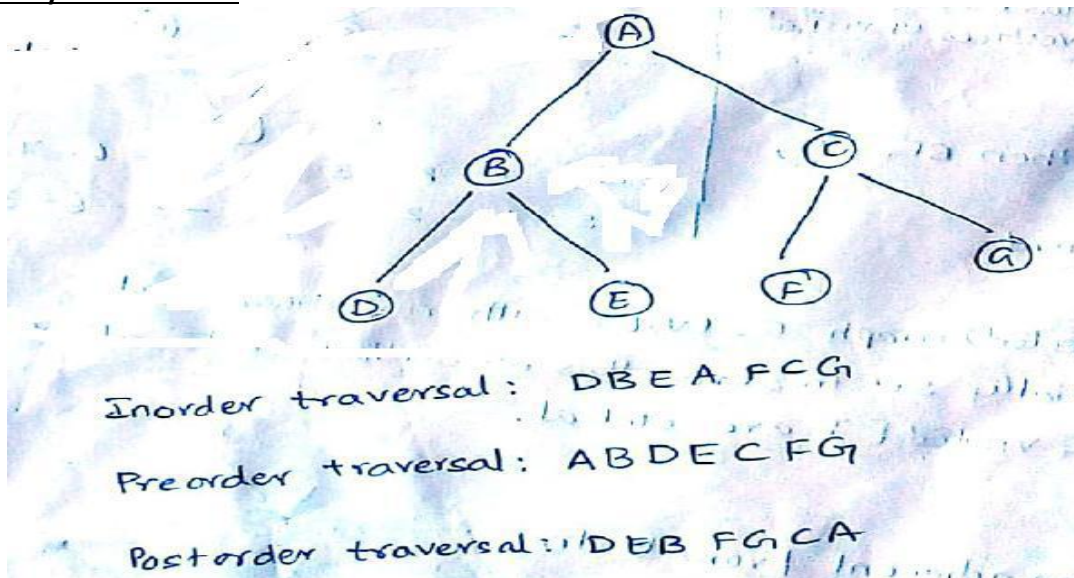 A
B
C
D
E
F
G
Inorder traversal: DBEA FCG
Preorder traversal: ABDECFG
Postorder traversal: DEB FGCA